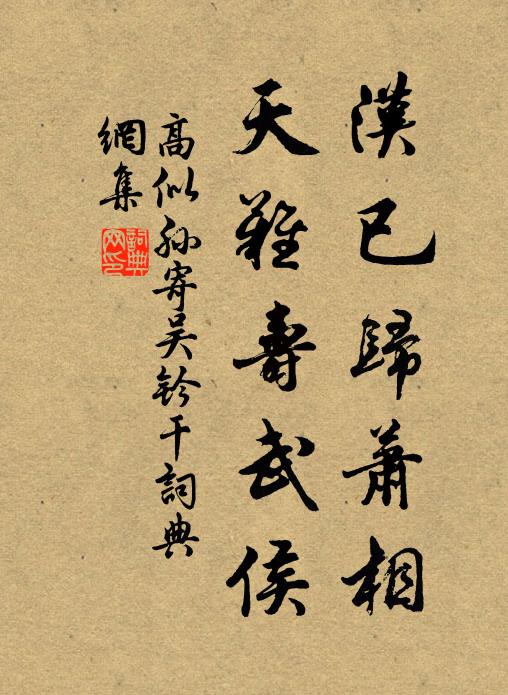 漢已歸蕭相
天難壽武侯
高似孙寄吴鈐干詞典
網集
詞典網印